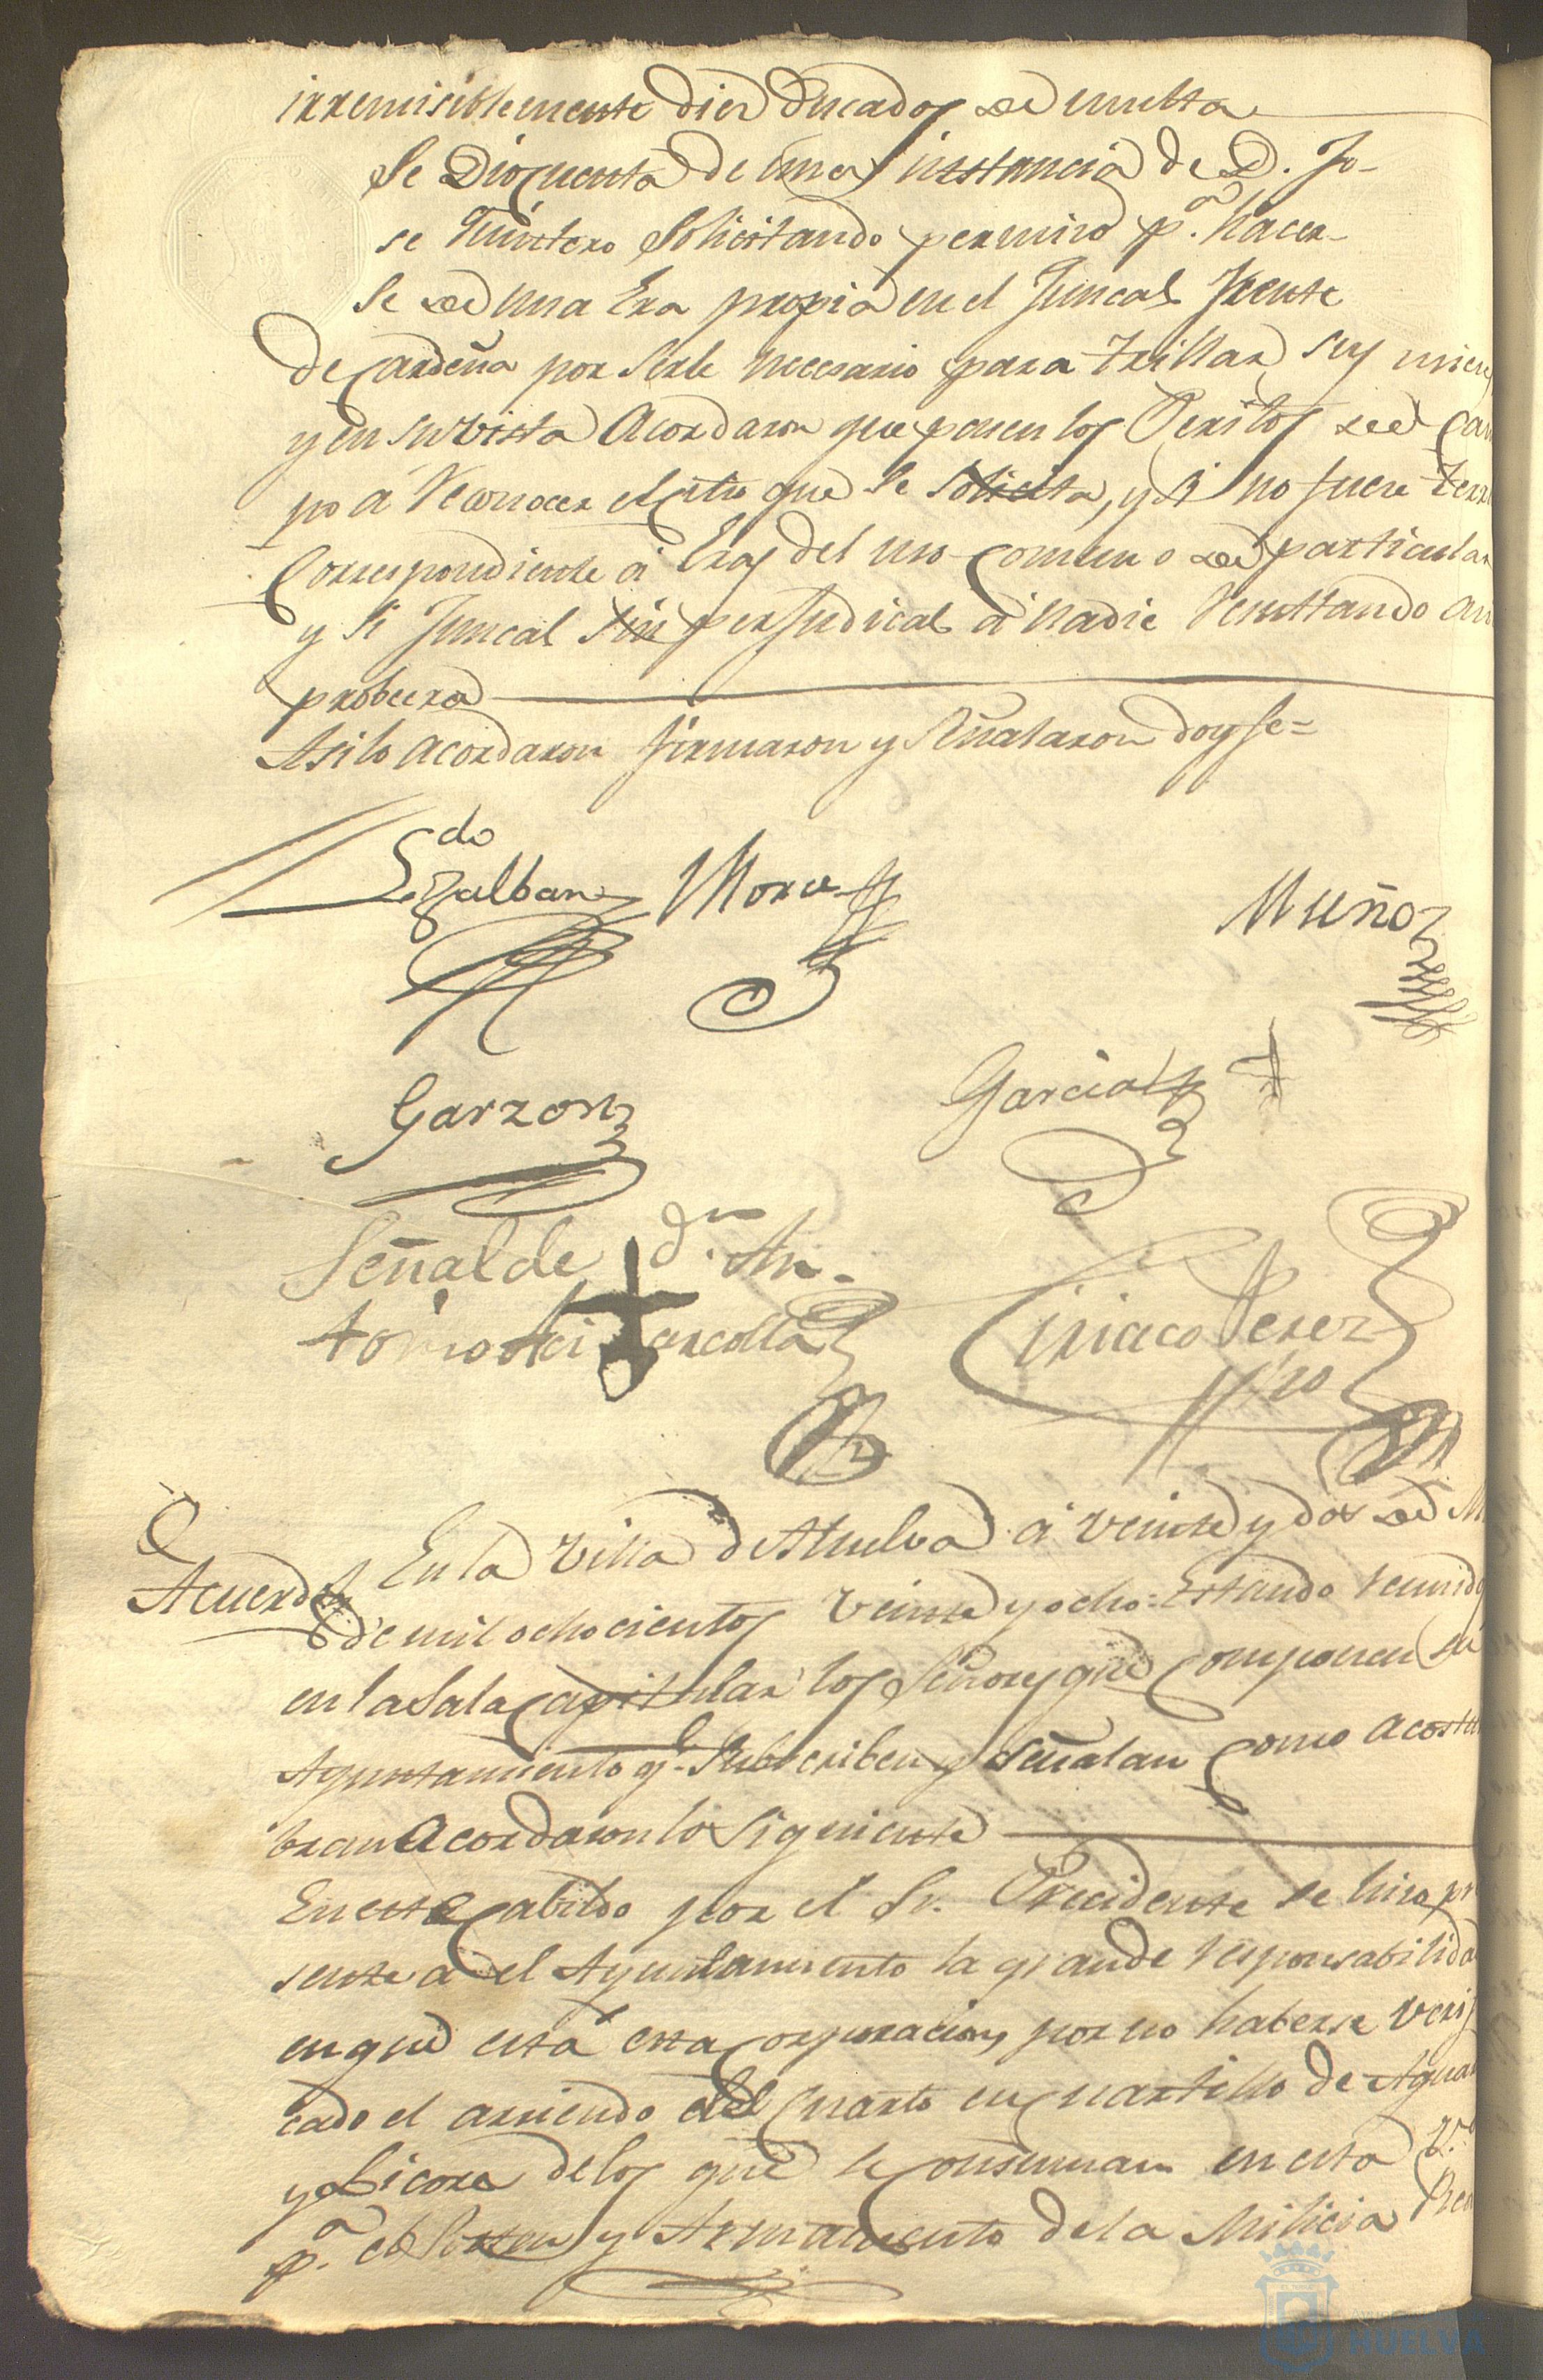 irremisiblemente diez Ducados de multa
Se Dio cuenta de una instancia de D. Jo-
se Quintero Solicitando permiso p.a hacer-
se de una Era propia en el Juncal frente
de Cardeña por serle necesario para trillar sus mies
y en su vista Acordaron que pasen los Peritos de Cam
po a Reconocer el citio que se solicita, y si no fuere terr
Correspondiente a Eras del uso comun o de particular
y si Juncal sin perjudical a nadie Resultando
probeera
Asi lo acordaron firmaron y Señalaron doy fe=
Ldo
Garzon
Mora
Muñoz
Garcia
Señal de dn An-
tonio
Ciriaco Perez
SSno
Acuerdo
En la Villa de Huelva a veinte y dos de M
de mil ochocientos veinte y ocho: Estando reunidos
en la Sala Capitular los Señores que componen su
Ayuntamiento q.e Subscriben y señalan como acostu
bran Acordaron lo Siguiente
En este Cabildo por el Sr. Precidente se hiso pre
sente a el Ayuntamiento la grande responsabilida
en que está esta Corporacion, por no haberse verifi
cado el arriendo del Cuarto en cuartillo de Aguar
y Licore de los que se consuman en esta V.a
p.a el Sosten y Armamento de la Milicia Rea
HUELVA